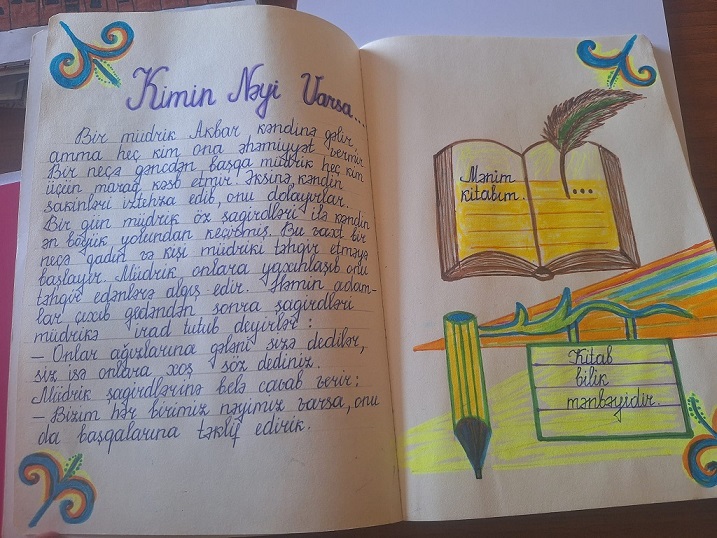 Kimin Nəyi Varsa...
Bir müdrik Akbar kəndinə gəlir,
amma heç kim ona əhəmiyyət vermir.
Bir neçə gəncdən başqa müdrik heç kim
üçün maraq kəsb etmir. Əksinə, kəndin
sakinləri istehza edib, onu dolayırlar.
Bir gün müdrik öz şagirdləri ilə kəndin
ən böyük yolundan keçirmiş. Bu vaxt bir
neçə qadın və kişi müdriki təhqir etməyə
başlayır. Müdrik, onlara yaxınlaşıb onu
təhqir edənlərə alqış edir. Həmin adam-
lar çıxıb gedəndən sonra şagirdləri
müdrikə irad tutub deyirlər:
– Onlar ağızlarına gələni sizə dedilər,
siz isə onlara xoş söz dediniz.
Müdrik şagirdlərinə belə cavab verir:
– Bizim hər birimiz nəyimiz varsa, onu
da başqalarına təklif edirik.
Mənim
kitabım. ...
Kitab
bilik
mənbəyidir.